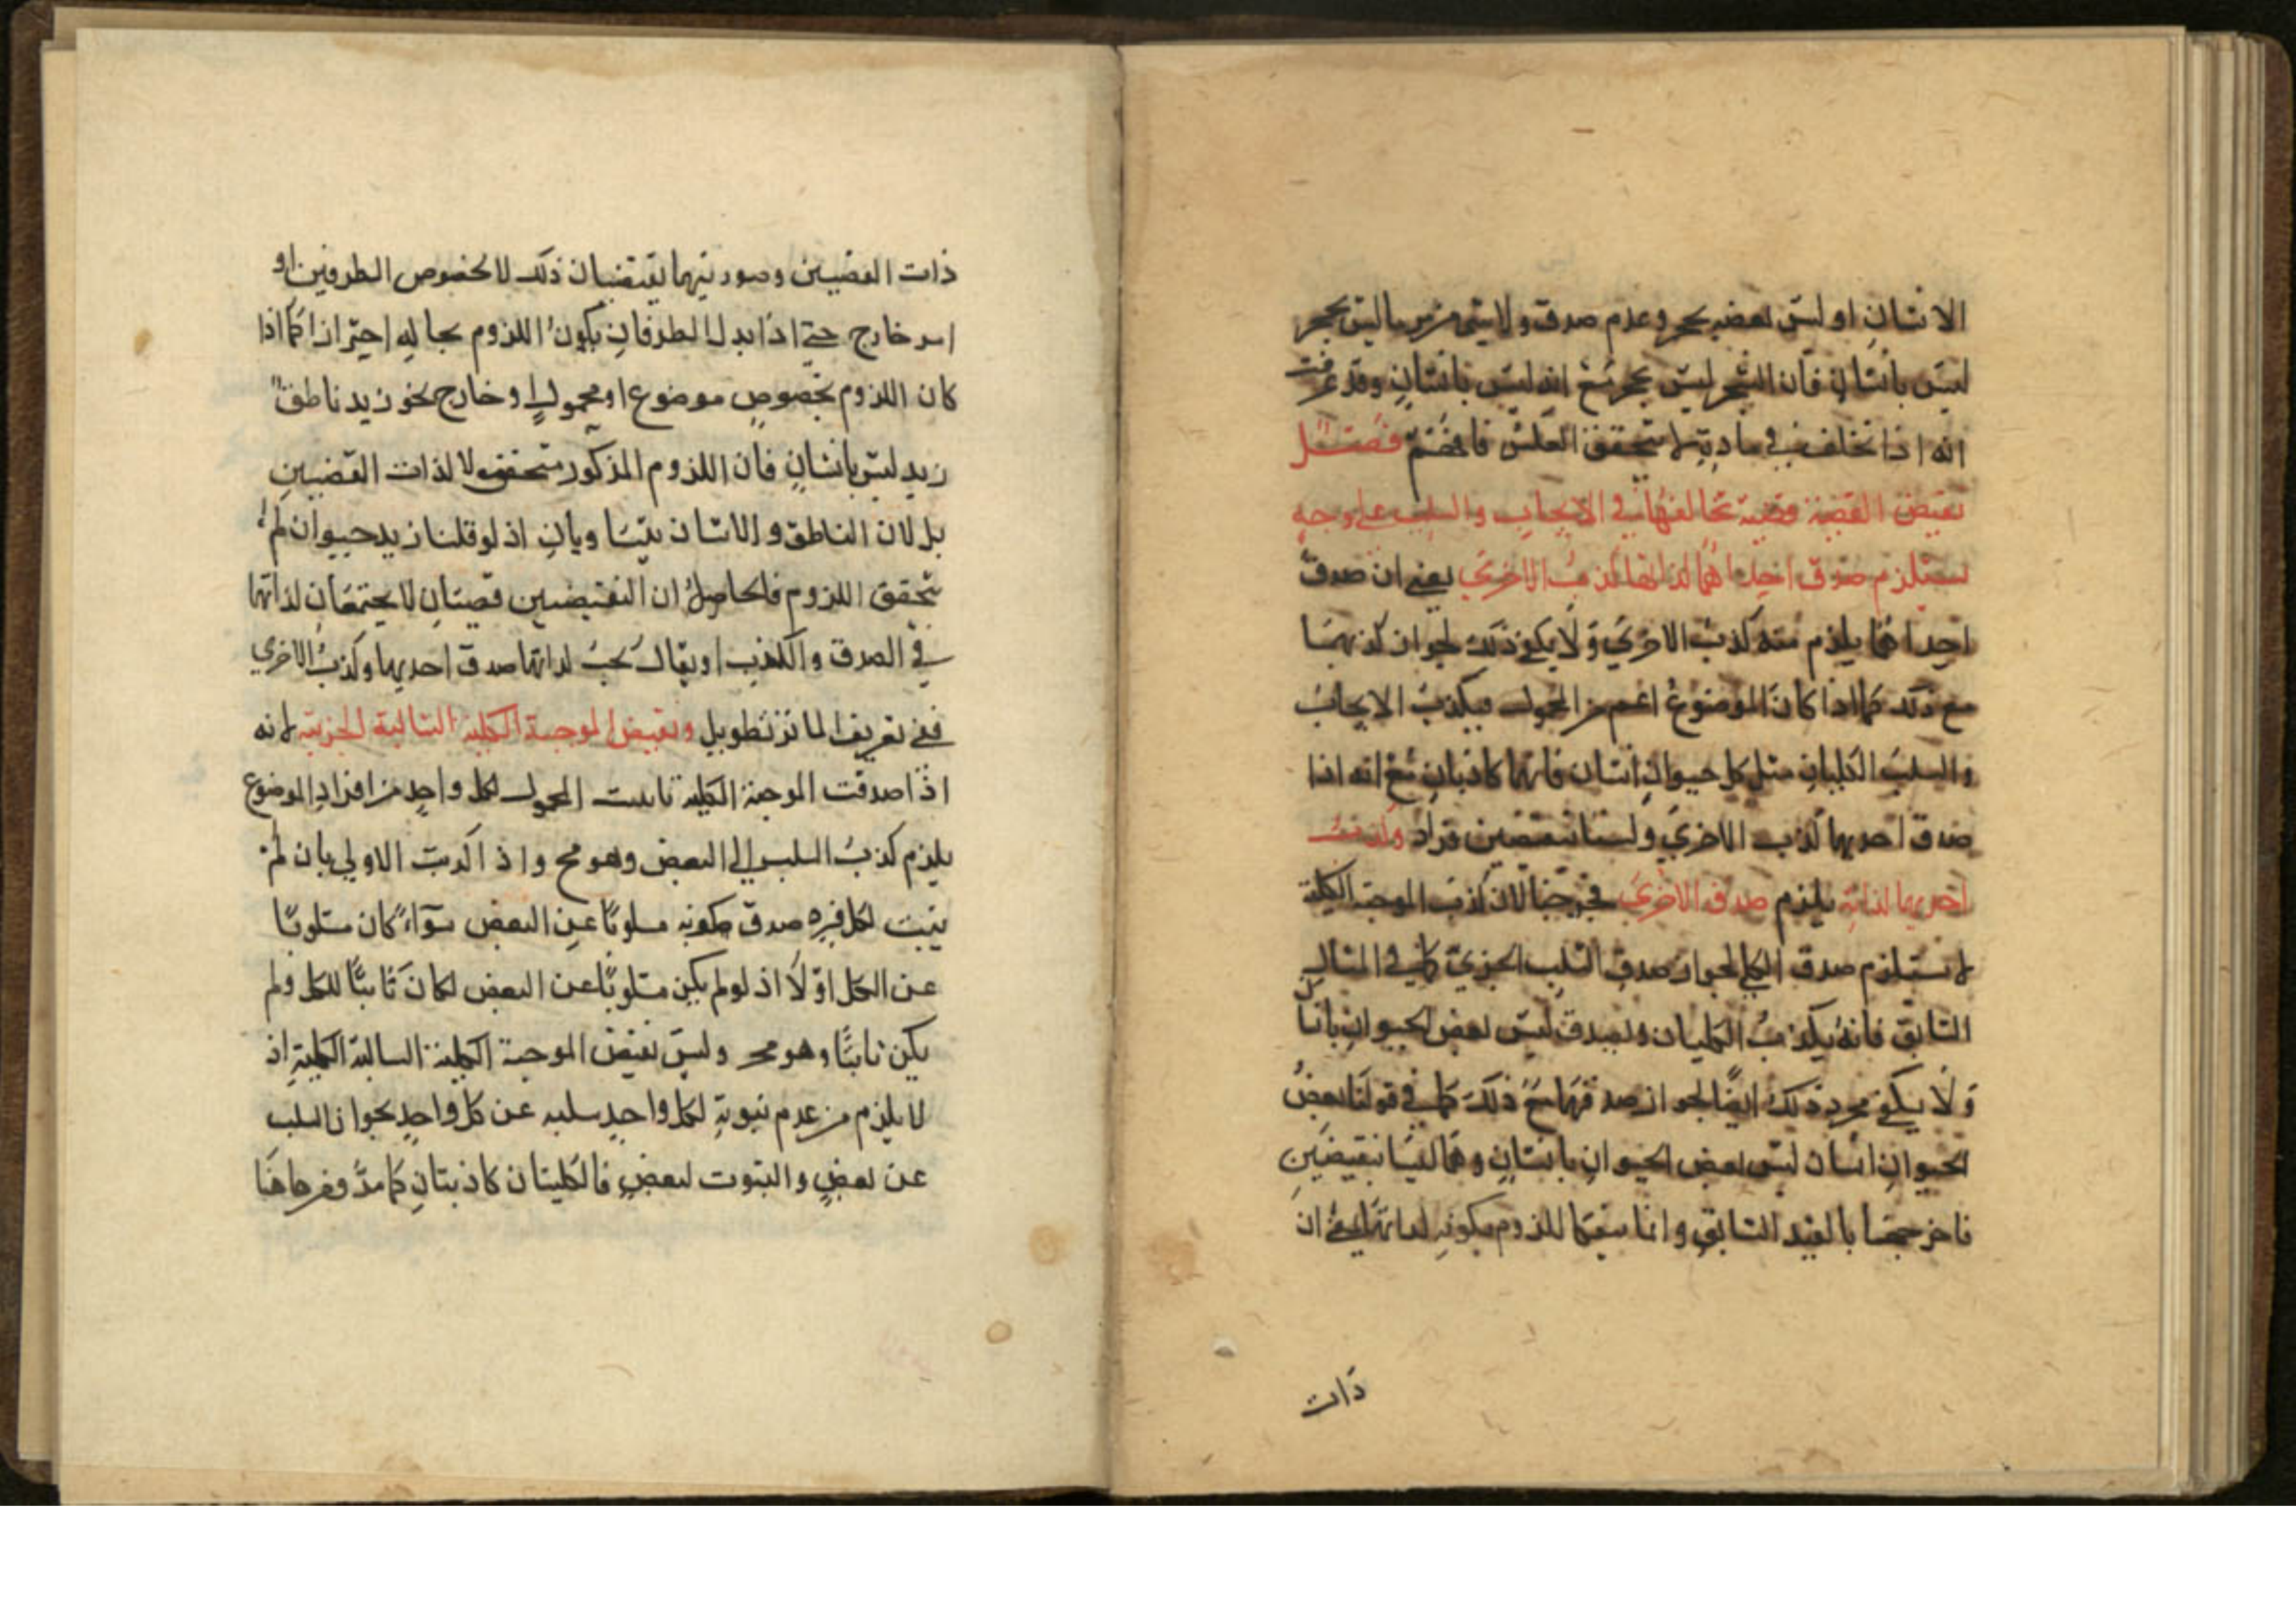 الانسان او ليس بعضه بحجر وعدم صدق ولا شيء من ما ليس بحجر
ليس بانسان فان الشجر ليس بحجر مع انه ليس بانسان وقد عرفت
انه اذا تخلف في مادة لم يتحقق العكس فافهم فصل
نقيض القضية قضية تخالفها في الايجاب والسلب على وجه
يستلزم صدق احداهما لذاتها كذب الاخرى يعني ان صدق
احداهما يلزم منه كذب الاخرى ولا يكفي ذلك لجواز كذبهما
مع ذلك كما اذا كان الموضوع اعم من المحمول فيكذب الايجاب
والسلب الكليان مثل كل حيوان انسان فانهما كاذبان مع انه اذا
صدق احديهما كذب الاخرى وليستا نقيضين فزاد وكذب
احديهما لذاته يلزم صدق الاخرى فخرجتا لان كذب الموجبة الكلية
لم يستلزم صدق الكلي لجواز صدق السلب الجزئي كما في المثال
السابق فانه يكذب الكليان ويصدق ليس بعض الحيوان بانسان
ولا يكفي مجرد ذلك ايضا لجواز صدقهما مع ذلك كما في قولنا بعض
الحيوان انسان ليس بعض الحيوان بانسان وهما ليسا نقيضين
فاخرجتا بالقيد السابق وانما قيدنا اللزوم بكونه لذاتها يعني ان
ذات
ذات القضيتين وصورتيهما يقتضيان ذلك لا لخصوص الطرفين او
امر خارج حتى اذا بدل الطرفان يكون اللزوم بحاله احترازا كما اذا
كان اللزوم بخصوص موضوع او محمول او خارج نحو زيد ناطق
زيد ليس بانسان فان اللزوم المذكور متحقق لا لذات القضيتين
بل لان الناطق والانسان يتساويان اذ لو قلنا زيد حيوان لم
يتحقق اللزوم فالحاصل ان النقيضين قضيتان لا يجتمعان لذاتهما
في الصدق والكذب او يقال يجب لذاتهما صدق احديهما وكذب الاخرى
ففي تعريف الماتن تطويل ونقيض الموجبة الكلية السالبة الجزئية لانه
اذا صدقت الموجبة الكلية ثابت المحمول لكل واحد من افراد الموضوع
يلزم كذب السلب الي البعض وهو مح واذا كذبت الاولى بان لم
يثبت لكل فرد صدق كونه مسلوبا عن البعض سواء كان مسلوبا
عن الكل او لا اذ لو لم يكن مسلوبا عن البعض لكان ثابتا للكل ولم
يكن ثابتا وهو مح وليس نقيض الموجبة الكلية السالبة الكلية اذ
لا يلزم من عدم ثبوته لكل واحد سلبه عن كل واحد لجواز السلب
عن بعض والثبوت لبعض فالكليتان كاذبتان كما مر وفرضنا